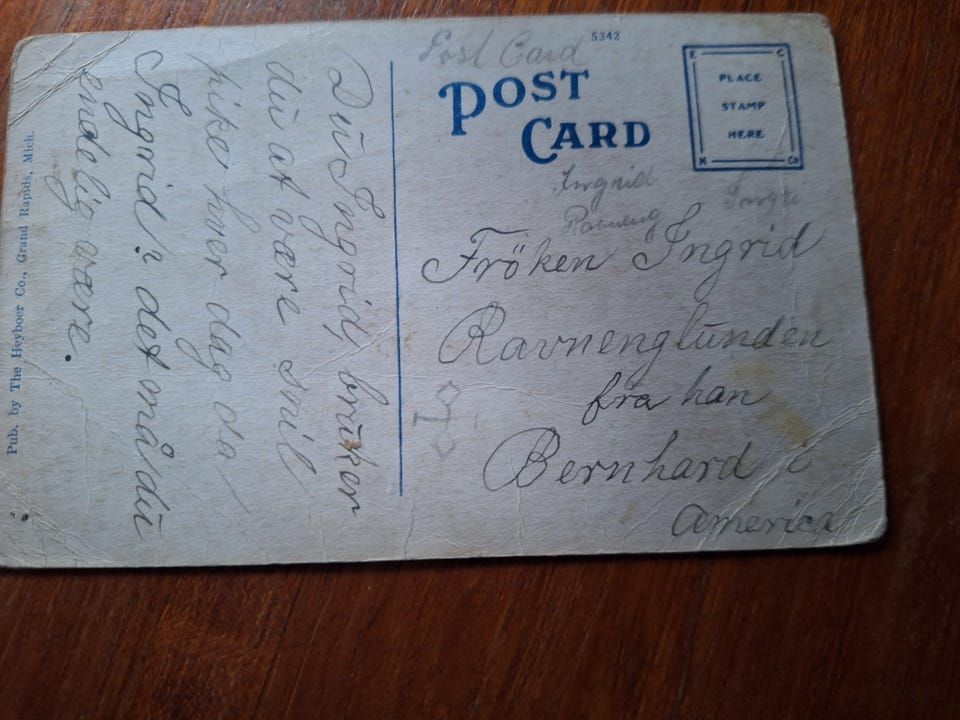 Post Card
5342
POST
CARD
E C
PLACE
STAMP
HERE
H Co
Ingrid
Ravneng
Fröken Ingrid
Ravnenglunden
fra han
Bernhard i
America
Du Ingrid, bruker
du at være snil
pike hver dag da
Ingrid? det må du
endelig være.
Pub. by The Heyboer Co., Grand Rapids, Mich.